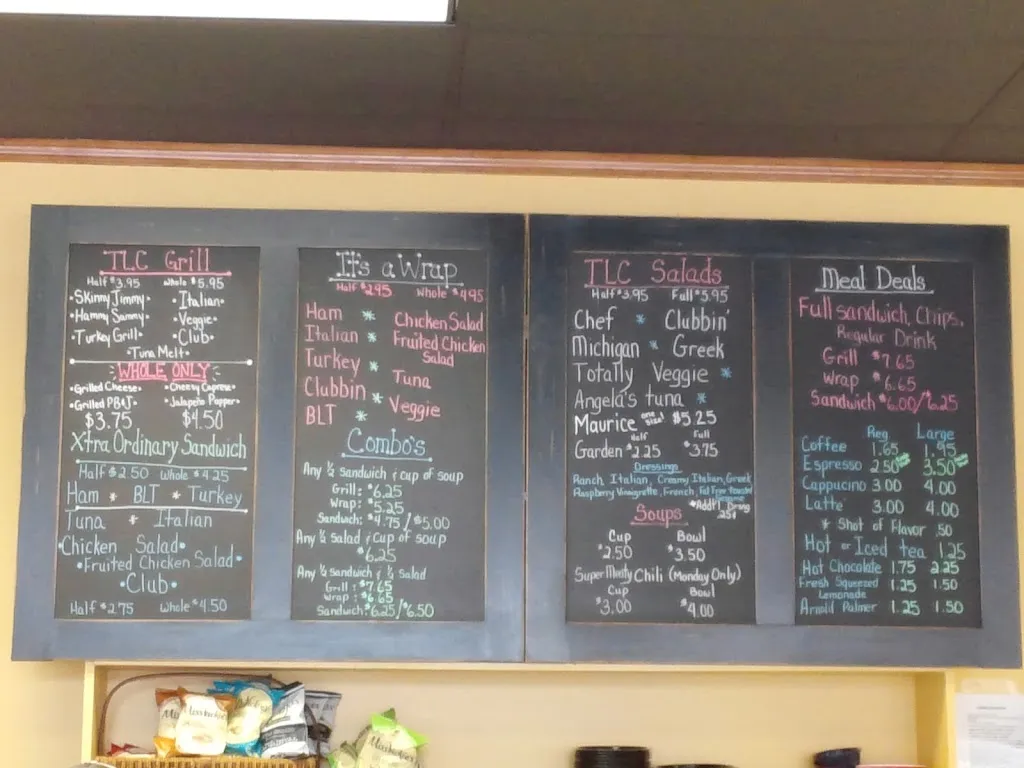 TLC Grill
Half $3.95 Whole $5.95
•Skinny Jimmy• •Italian•
•Hammy Sammy• •Veggie•
•Turkey Grill• •Club•
•Tuna Melt•
WHOLE ONLY
•Grilled Cheese• •Cherry Caprese•
•Grilled PB&J• •Jalapeño Popper•
$3.75 $4.50
Xtra Ordinary Sandwich
Half $2.50 Whole $4.25
Ham * BLT * Turkey
Tuna * Italian
•Chicken Salad•
•Fruited Chicken Salad•
•Club•
Half $2.75 Whole $4.50
It's a Wrap
Half $2.95 Whole $4.95
Ham * Chicken Salad
Italian * Fruited Chicken
Salad
Turkey *
Tuna
Clubbin *
Veggie
BLT *
Combo's
Any ½ sandwich & cup of soup
Grill: $6.25
Wrap: $5.25
Sandwich: $4.75/$5.00
Any ½ Salad & cup of soup
$6.25
Any ½ sandwich & ½ salad
Grill: $7.65
Wrap: $6.65
Sandwich: $6.25/$6.50
TLC Salads
Half $3.95 Full $5.95
Chef * Clubbin'
Michigan * Greek
Totally Veggie *
Angela's tuna *
Maurice one size! $5.25
Half Full
Garden $2.25 $3.75
Dressings
Ranch, Italian, Creamy Italian, Greek
Raspberry Vinaigrette, French, Fat Free
*Addt'l Dressing
25¢
Soups
Cup Bowl
$2.50 $3.50
Super Meaty Chili (Monday Only)
Cup Bowl
$3.00 $4.00
Meal Deals
Full sandwich, Chips,
Regular Drink
Grill $7.65
Wrap $6.65
Sandwich $6.00/$6.25
Reg Large
Coffee 1.65 1.95
Espresso 2.50 3.50
Cappucino 3.00 4.00
Latte 3.00 4.00
* Shot of Flavor .50
Hot or Iced tea 1.25
Hot Chocolate 1.75 2.25
Fresh Squeezed 1.25 1.50
Lemonade
Arnold Palmer 1.25 1.50